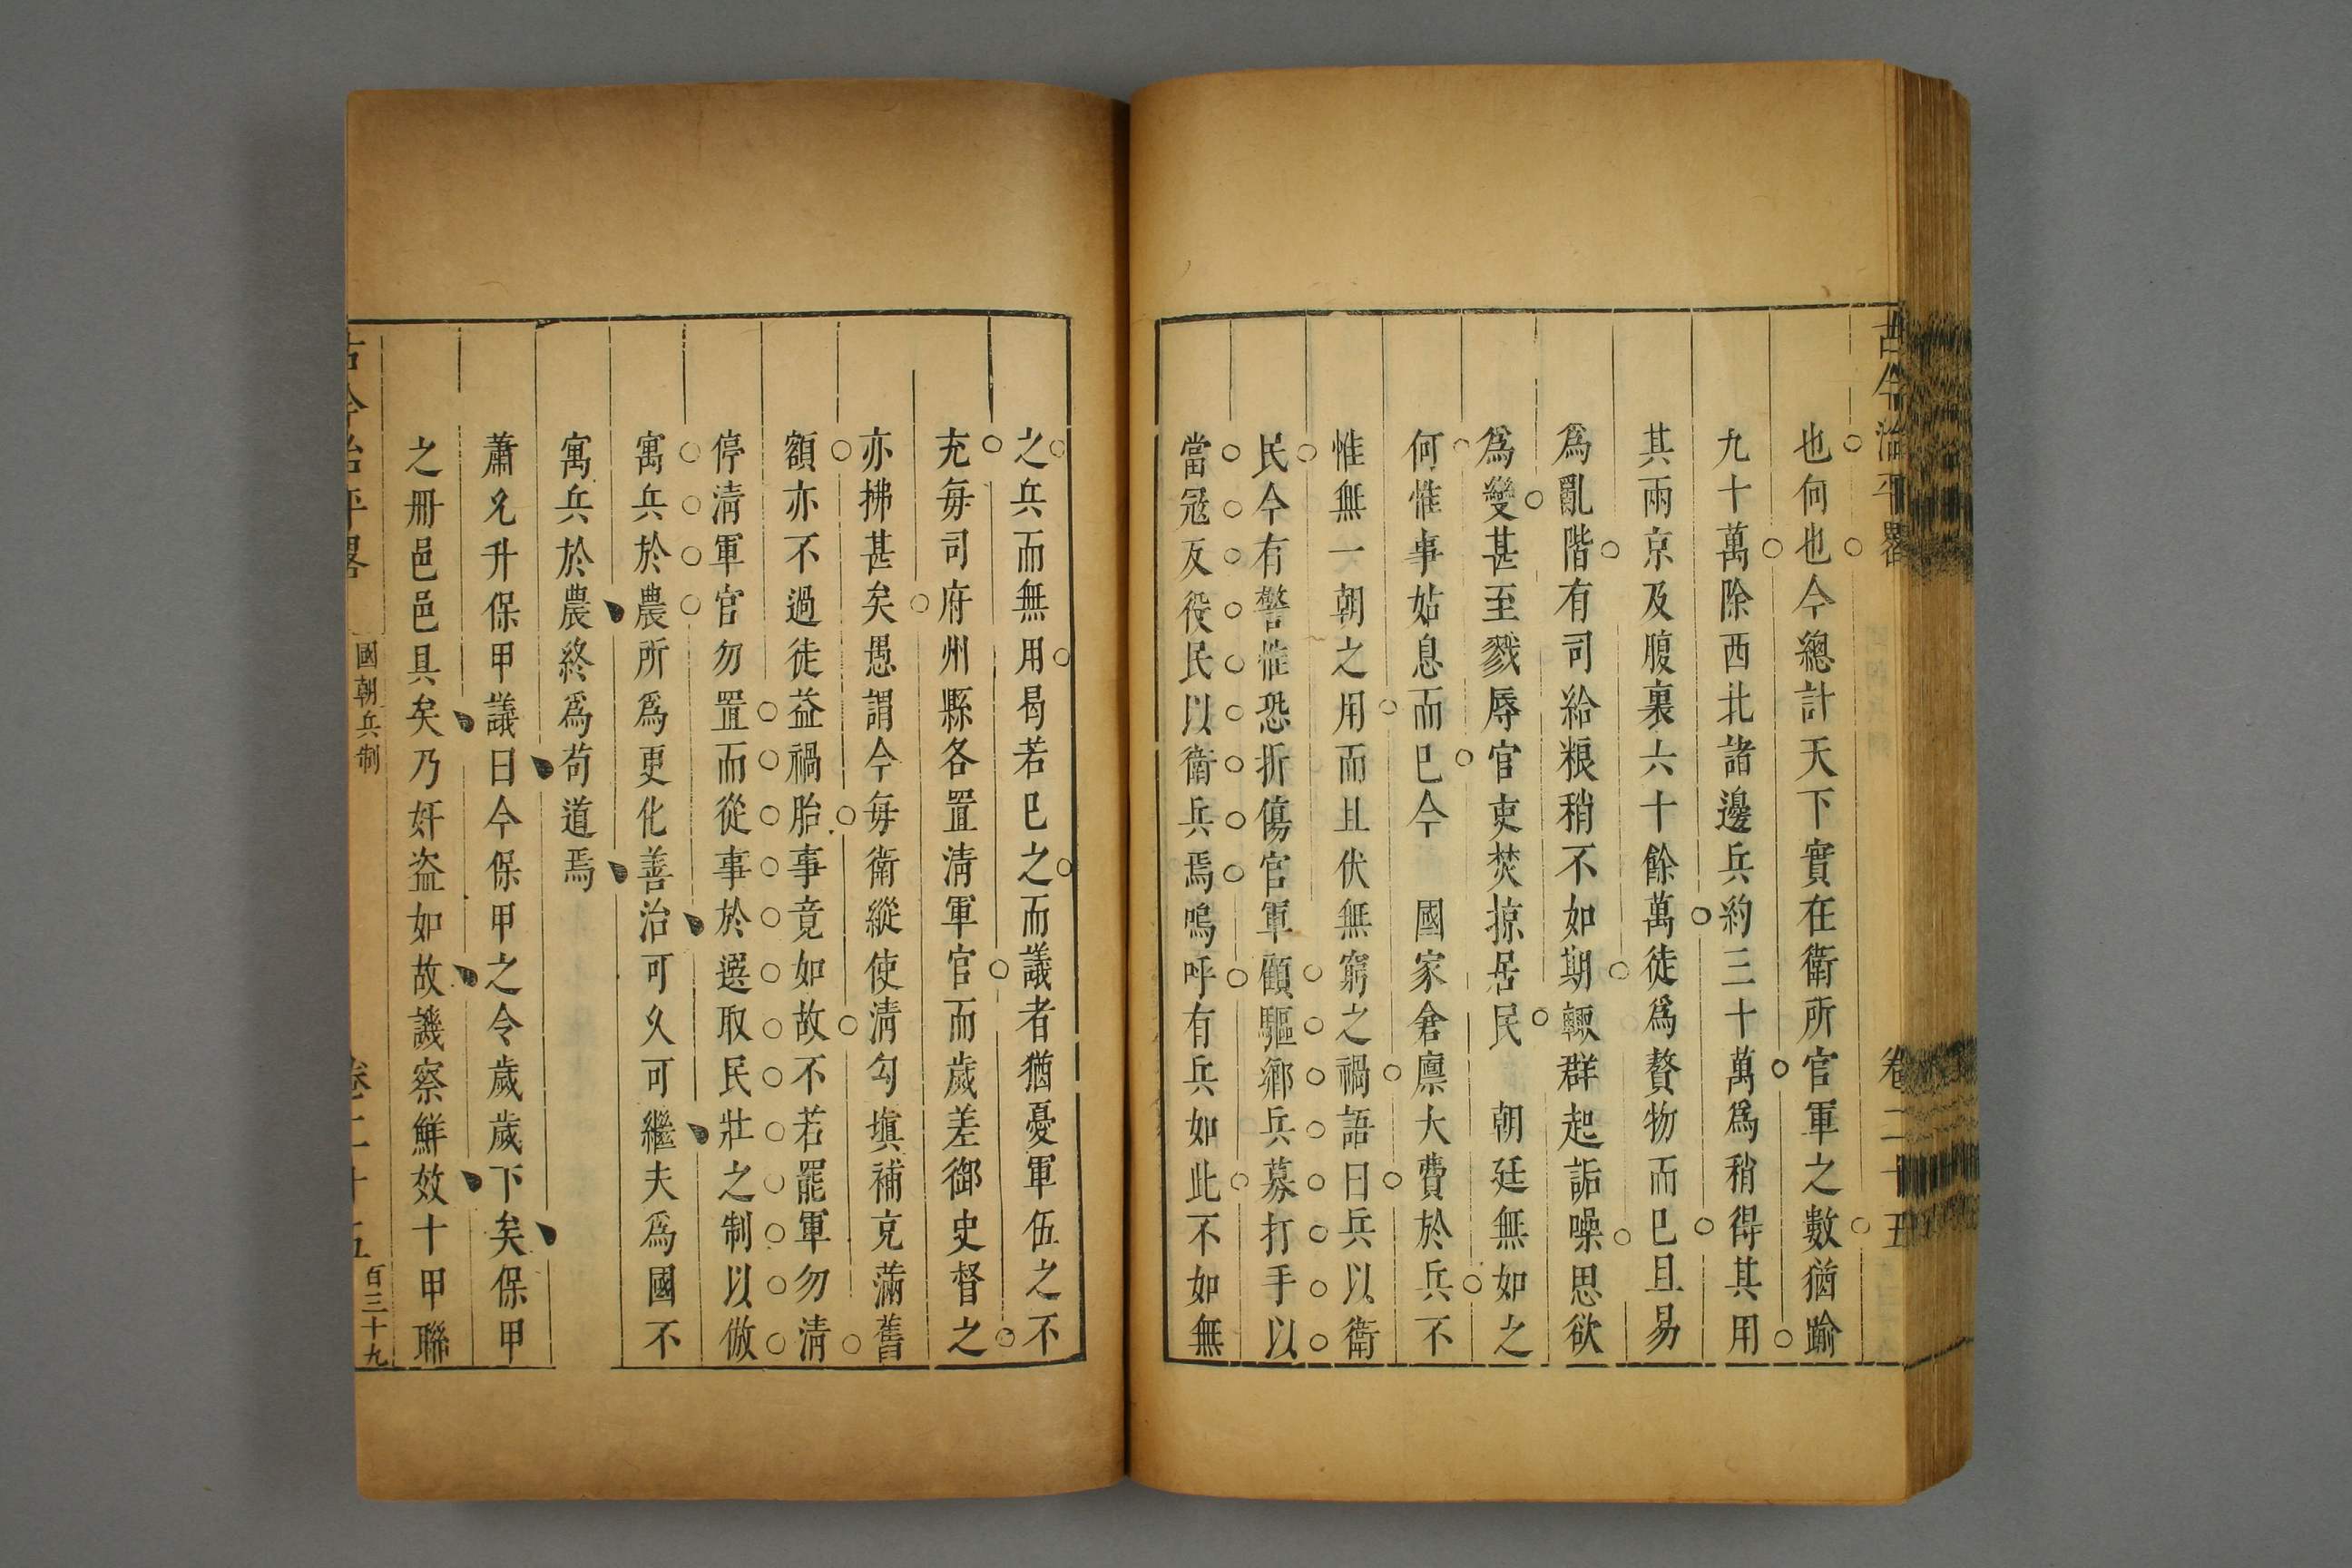 古今治平畧
卷二十五
也何也今總計天下實在衛所官軍之數猶踰
九十萬除西北諸邊兵約三十萬爲稍得其用
其兩京及腹裏六十餘萬徒爲贅物而已且易
爲亂階有司給粮稍不如期輙群起詬噪思欲
爲變甚至戮辱官吏焚掠居民 朝廷無如之
何惟事姑息而已今 國家倉廪大費於兵不
惟無一朝之用而且伏無窮之禍語曰兵以衛
民今有警惟恐折傷官軍顧驅鄉兵募打手以
當冦反役民以衛兵焉嗚呼有兵如此不如無
之兵而無用曷若已之而議者猶憂軍伍之不
充每司府州縣各置清軍官而歲差御史督之
亦拂甚矣愚謂今每衛縱使清勾塡補充滿舊
額亦不過徒益禍胎事竟如故不若罷軍勿清
停清軍官勿置而從事於選取民壯之制以倣
寓兵於農所爲更化善治可久可繼夫爲國不
寓兵於農終爲苟道焉
蕭允升保甲議曰今保甲之令歲歲下矣保甲
之冊邑邑具矣乃奸盗如故譏察鮮效十甲聯
古今治平畧
國朝兵制
卷二十五
百三十九